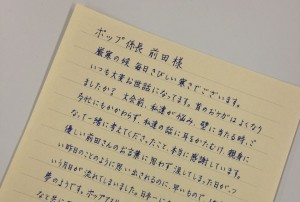 ポップ係長 前田 様
厳寒の候 毎日きびしい寒さでございます。
いつも大変お世話になってます。首のおケガはよくなり
ましたか？大会前、私達が悩み、壁に当たる時、ご
多忙にもかかわらず、私達の話に耳をかたむけ、親身に
なって一緒に考えてくださったこと、本当に感謝しています。
優しい前田さんのお言葉に思わず涙してしまった日が、つ
い昨日のことのように思い出されるのに、早いもので、
いう月日が流れてしまいました。日本一に
夢のようです。ポップ